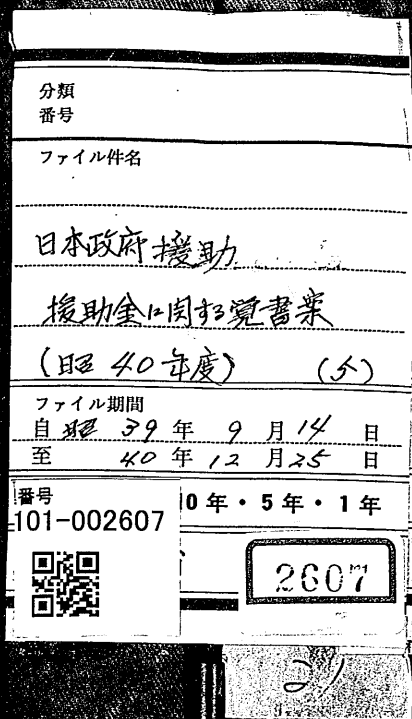 分類
番号
ファイル件名
日本政府援助
援助金に関する覚書案
(昭40年度) (5)
ファイル期間
自 昭 39 年 9 月 14 日
至 40 年 12 月 25 日
番号
101-002607
0年・5年・1年
2607
21